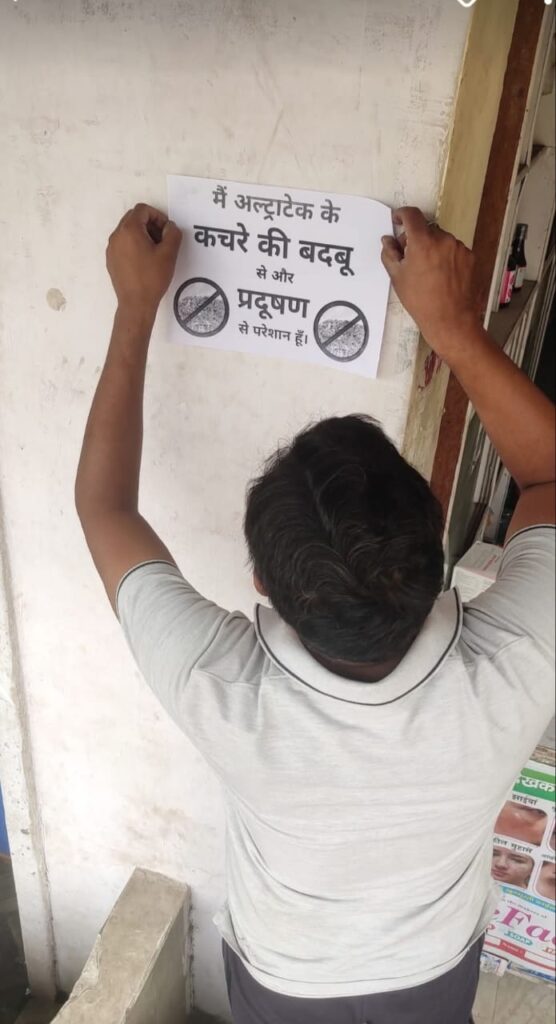 मैं अल्ट्राटेक के
कचरे की बदबू
से और
प्रदूषण
से परेशान हूँ।
SOAP